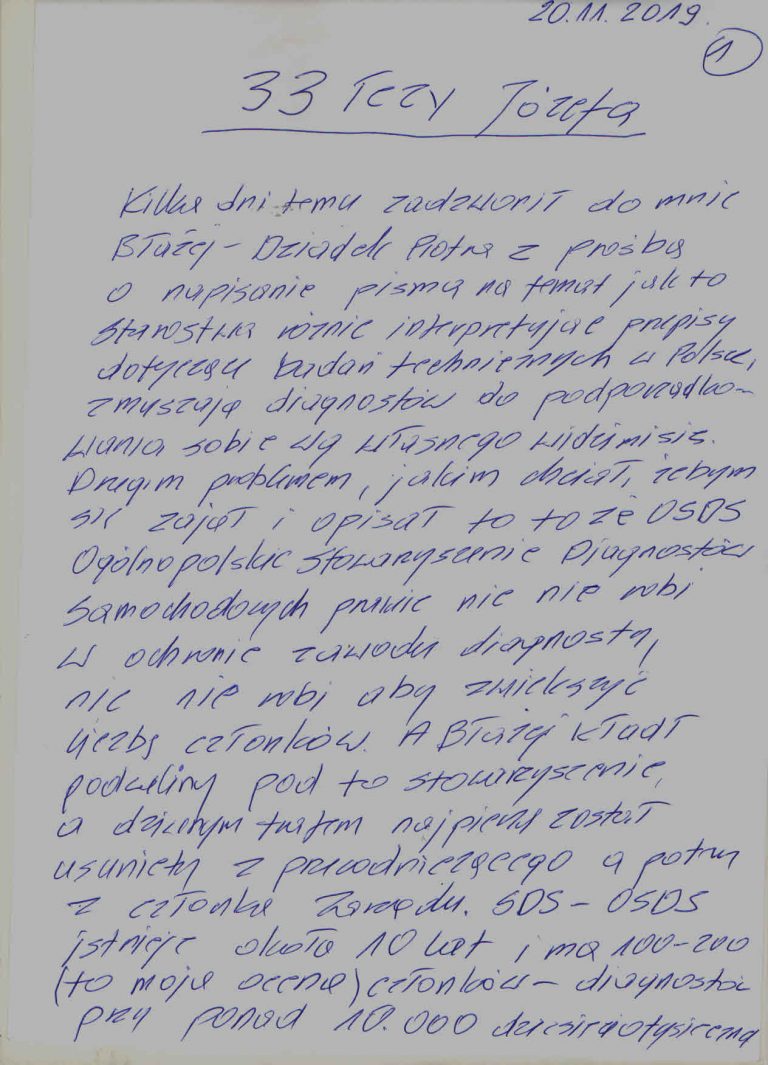 20.11.2019.
1
33 Tezy Józefa
Kilka dni temu zadzwonił do mnie
Błażej – Dziadek Piotra z prośbą
o napisanie pisma na temat jak to
Starostwa różnie interpretując przepisy
dotyczące badań technicznych w Polsce,
zmuszają diagnostów do podporządko-
wania sobie wg własnego widzimisię.
Drugim problemem, jakim chciał, żebym
się zajął i opisał to to że OSDS
Ogólnopolskie Stowarzyszenie Diagnostów
Samochodowych prawie nic nie robi
w ochronie zawodu diagnosty,
nic nie robi aby zwiększyć
liczbę członków. A Błażej kładł
podwaliny pod to stowarzyszenie,
a dziwnym trafem najpierw został
usunięty z przewodniczącego a potem
z członka Zarządu. SDS – OSDS
istnieje około 10 lat i ma 100-200
(to moja ocena) członków – diagnostów
przy ponad 10.000